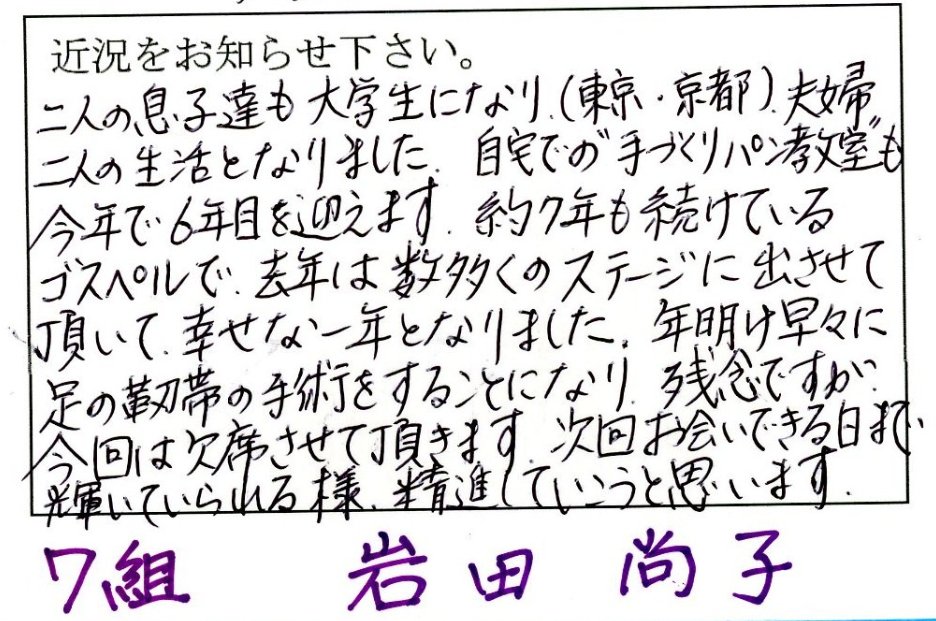 近況をお知らせ下さい。
二人の息子達も大学生になり、(東京・京都)、夫婦
二人の生活となりました。自宅での"手づくりパン教室"も
今年で6年目を迎えます。約7年も続けている
ゴスペルで、去年は数多くのステージに出させて
頂いて、幸せな一年となりました。年明け早々に
足の靭帯の手術をすることになり、残念ですが、
今回は欠席させて頂きます。次回お会いできる日まで、
輝いていられる様、精進していこうと思います。
7組 岩田 尚子